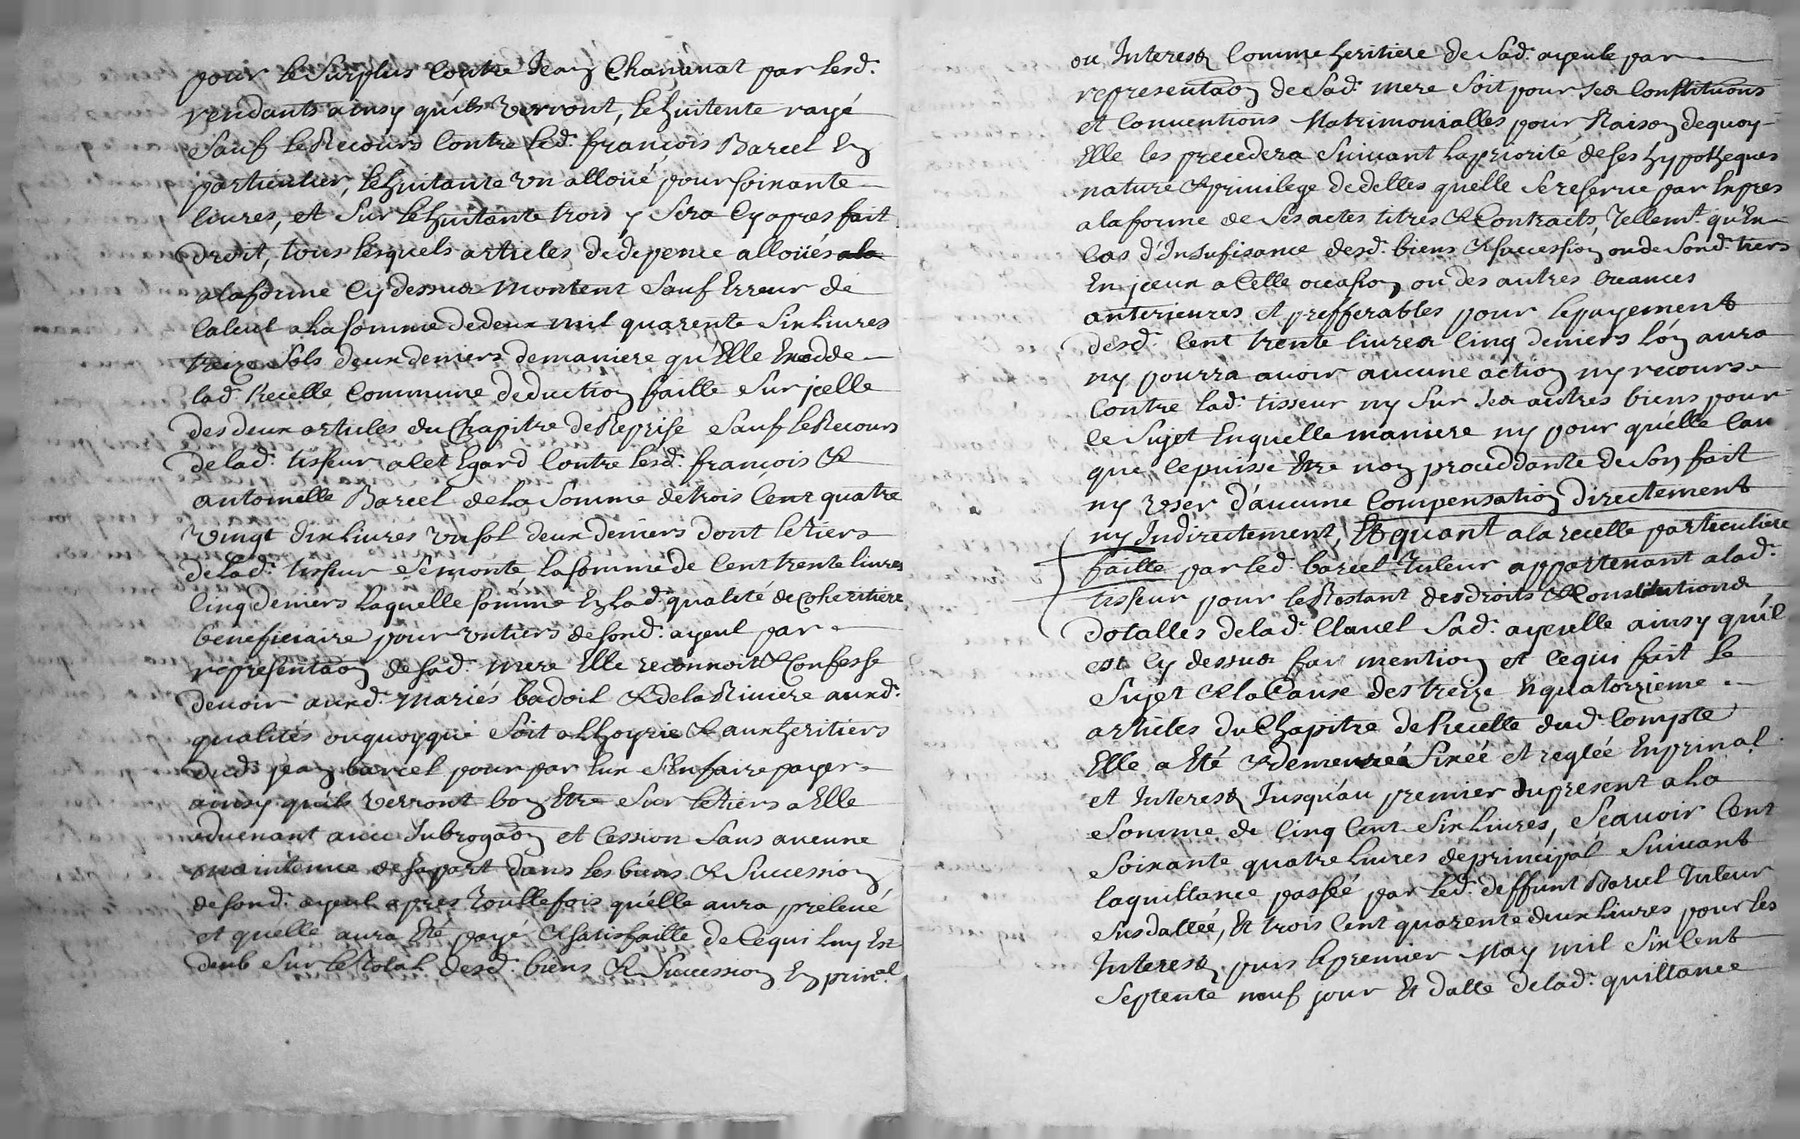 pour le surplus contre Jean Chananat par lesd.
rendants ainsy quils verront, le huitente rayé
sauf le Recours contre led. françois Barcel En
particulier, le huitante un alloué pour soixante
livres, et sur le huitante trois y sera Cy apres fait
droit, tous lesquels articles de depence alloüés
a la forme Cy dessus Montent sauf Erreur de
Calcul a la somme de deux mil quarente six livres
treize sols deux deniers de maniere qu'Elle Excedde
lad. Recette Commune deduction faitte sur jcelle
des deux articles du Chapitre de Reprise sauf le Recours
de lad. tisseur a cet Egard Contre lesd. francois &
antoinette Barcel de la somme de trois Cent quatre
vingt dix livres un sol deux deniers dont le tiers
de lad. tisseur se monte la somme de Cent trente livres
Cinq deniers laquelle somme En lad. qualité de Coheritiere
beneficiaire pour un tiers de sond. ayeul par
representaon de sad. mere Elle reconnoit & Confesse
devoir auxd. Maries badoil & de la Riviere auxd.
qualités ou quoyque soit a lhoyrie & aux heritiers
dud. jean barcel pour par Eux s'En faire payer
ainsy quils verront bon Etre sur le tiers a Elle
advenant avec subrogaon et Cession sans aucune
maintenue de sa part dans les biens & succession
de sond. ayeul apres touttefois qu'elle aura prelevé
et quelle aura Eté payé & satisfaitte de Cequi luy Est
deub sur le total desd. biens & succession En prinal
ou Interests Comme heritiere de sad. ayeule par
representaon de sad. mere soit pour ses Constituons
et Conventions Matrimonialles pour Raison dequoy
Elle les precedera suivant la priorité de ses hypotheques
nature & privilege dedettes quelle se reserve par Expres
a la forme de ses actes titres & Contracts, tellemt. qu'En
Cas d'Insufisance desd. biens & succession ou de sond. tiers
En jceux a Celle occasion ou des autres Creances
anterieures et prefferables pour le payement
desd. Cent trente livres Cinq deniers l'on aura
ny pourra avoir aucune action ny recours
Contre lad. tisseur ny sur ses autres biens pour
Ce sujet En quelle maniere ny pour quelle Cau
que Ce puisse Etre non proceddante de son fait
ny user d'aucune Compensation directement
ny Indirectement, Et quant a la recette particuliere
faitte par led. barcel tuteur appartenant a lad.
tisseur pour le Restant des droits & Constitutions
dotalles de lad. Clavel sad. ayeulle ainsy qu'il
est Cy dessus fait mention et Cequi fait le
sujet & la Cause des treize & quatorzieme
articles du Chapitre de Recette dud. Compte
Elle a Eté & demeurée fixée et reglée En prinal
et Interests Jusqu'au premier du present a la
somme de Cinq Cent six livres, sçavoir Cent
soixante quatre livres de principal suivant
la quittance passée par led. deffunt Barcel tuteur
susdattée, Et trois Cent quarente deux livres pour les
Interests puis le premier May mil six Cent
septente neuf jour Et datte de lad. quittance